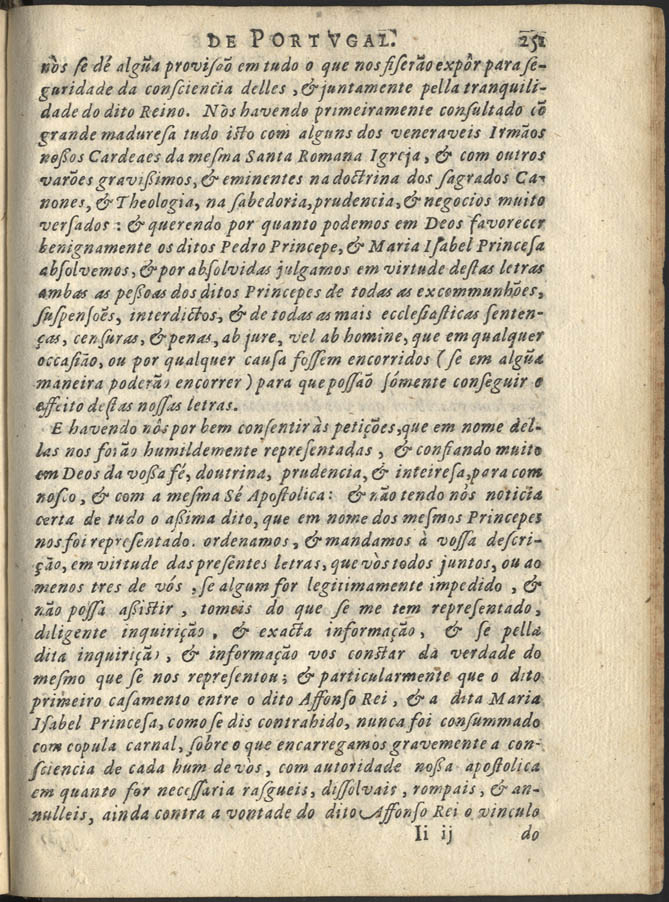 DE PORTVGAL. 251
nòs se dé algũa provisaõ em tudo o que nos fiserão expôr para se-
guridade da consciencia delles, & juntamente pella tranquili-
dade do dito Reino. Nòs havendo primeiramente consultado cõ
grande maduresa tudo isto com alguns dos veneraveis Irmãos
noßos Cardeaes da mesma Santa Romana Igreja, & com outros
varões gravißimos, & eminentes na doctrina dos sagrados Ca-
nones, & Theologia, na sabedoria, prudencia, & negocios muito
versados: & querendo por quanto podemos em Deos favorecer
benignamente os ditos Pedro Princepe, & Maria Isabel Princesa
absolvemos, & por absolvidas julgamos em virtude destas letras
ambas as peßoas dos ditos Princepes de todas as excommunhões,
suspensoẽs, interdictos, & de todas as mais ecclesiasticas senten-
ças, censuras, & penas, ab jure, vel ab homine, que em qualquer
occasião, ou por qualquer causa fossem encorridos (se em algũa
maneira poderão encorrer) para que possão sómente conseguir o
effeito destas nossas letras.
E havendo nôs por bem consentir às petições, que em nome del-
las nos forão humildemente representadas, & confiando muito
em Deos da voßa fé, doutrina, prudencia, & inteiresa, para com
nosco, & com a mesma Sé Apostolica: & não tendo nós noticia
certa de tudo o aßima dito, que em nome dos mesmos Princepes
nos foi representado. ordenamos, & mandamos à vossa descri-
ção, em virtude das presentes letras, que vòs todos juntos, ou ao
menos tres de vós, se algum for legitimamente impedido, &
não possa aßistir, tomeis do que se me tem representado,
diligente inquirição, & exacta informação, & se pella
dita inquirição, & informação vos constar da verdade do
mesmo que se nos representou; & particularmente que o dito
primeiro casamento entre o dito Affonso Rei, & a dita Maria
Isabel Princesa, como se dis contrahido, nunca foi consummado
com copula carnal, sóbre o que encarregamos gravemente a con-
sciencia de cada hum de vòs, com autoridade noßa apostolica
em quanto for necessaria rasgueis, dissolvais, rompais, & an-
nulleis, ainda contra a vontade do dito Affonso Rei o vinculo
Ii ij do